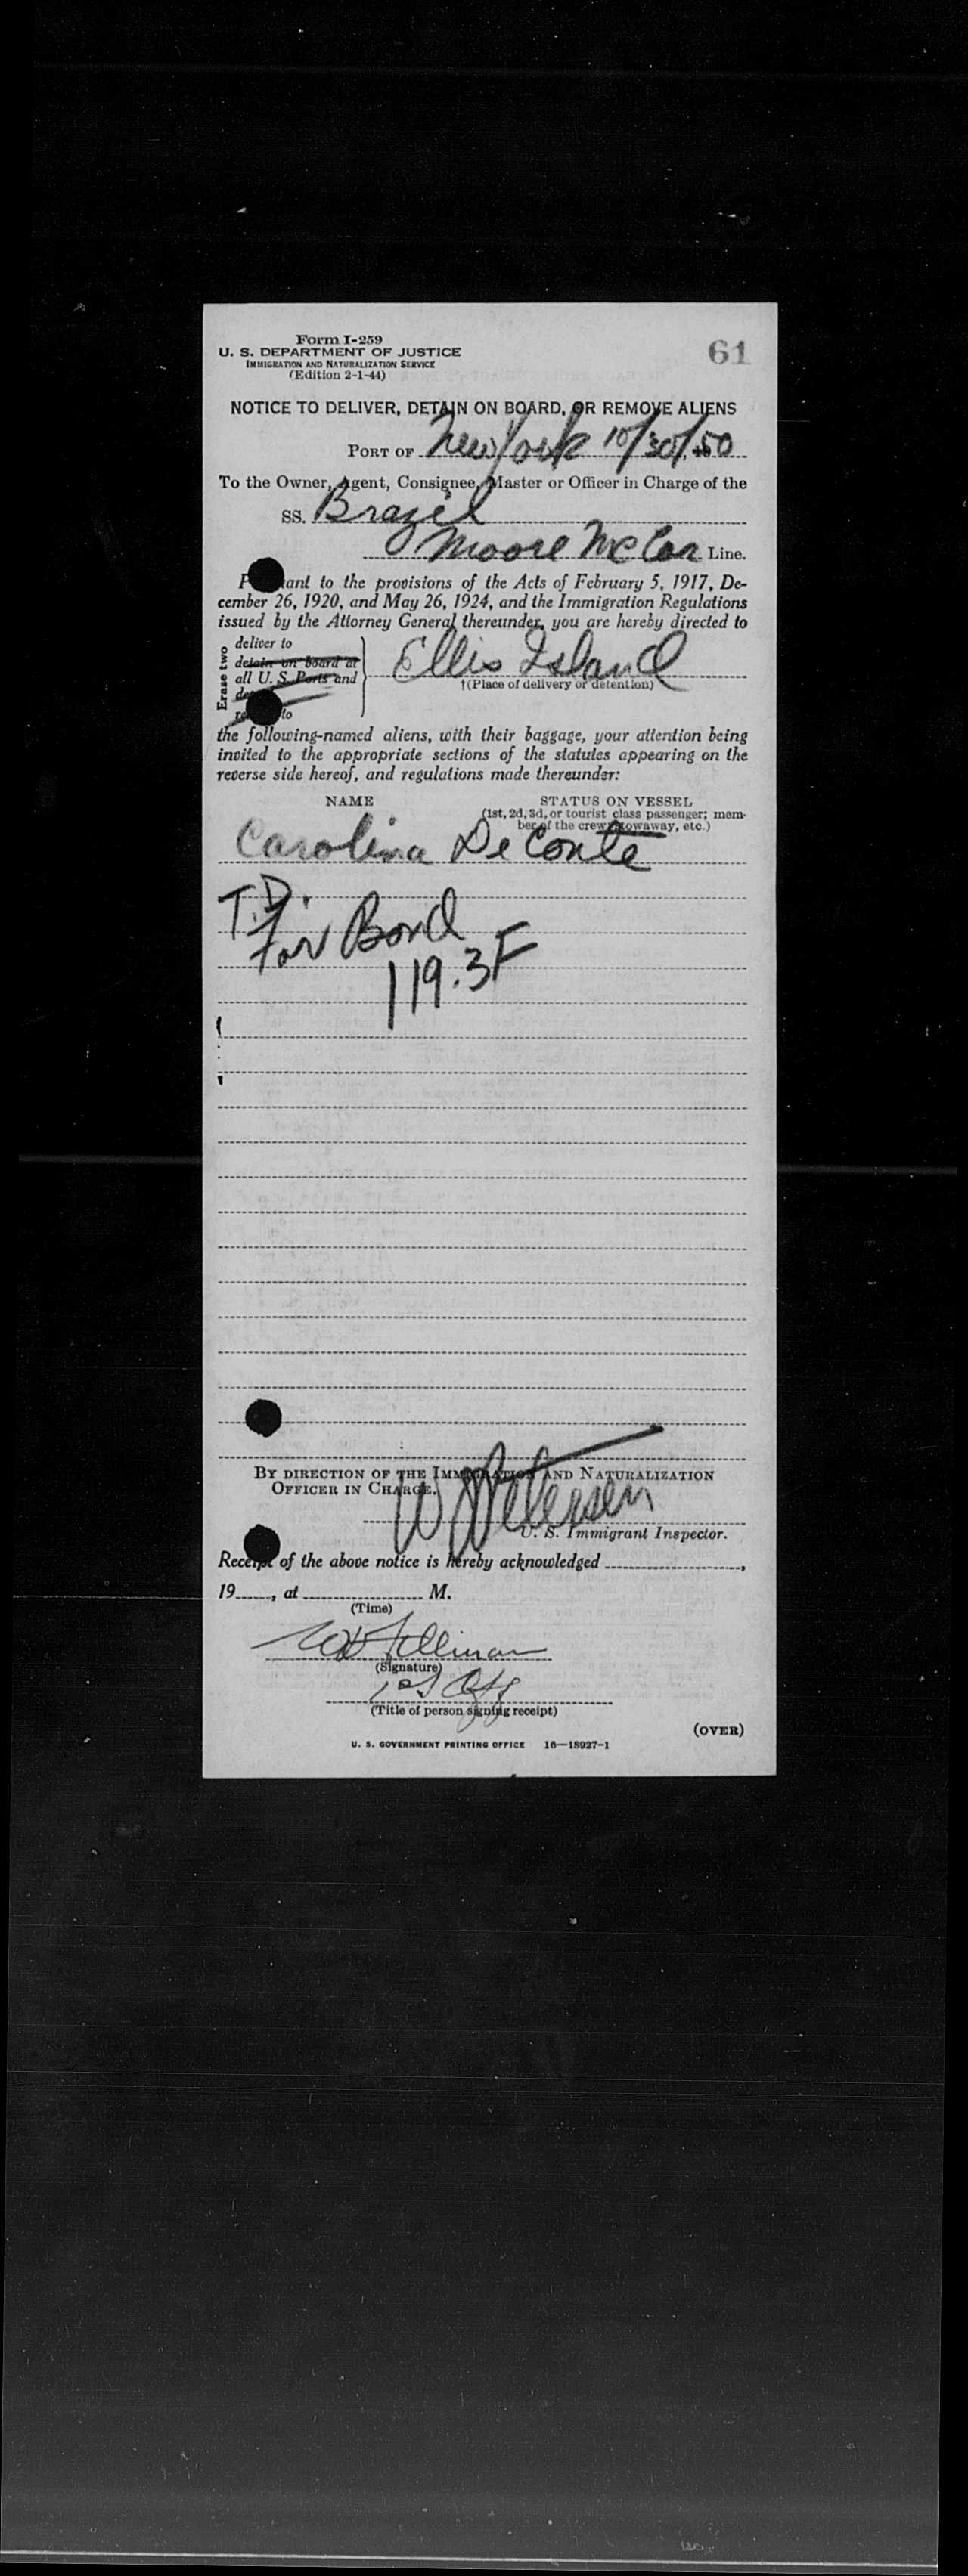 Form I-259
U. S. DEPARTMENT OF JUSTICE
IMMIGRATION AND NATURALIZATION SERVICE
(Edition 2-1-44)
61
NOTICE TO DELIVER, DETAIN ON BOARD, OR REMOVE ALIENS
PORT OF New York 10/30/50
To the Owner, Agent, Consignee, Master or Officer in Charge of the
SS. Brazil
Moore McCor Line.
P ant to the provisions of the Acts of February 5, 1917, De-
cember 26, 1920, and May 26, 1924, and the Immigration Regulations
issued by the Attorney General thereunder, you are hereby directed to
Erase two
deliver to
detain on board at
all U. S. Ports and
to
Ellis Island
†(Place of delivery or detention)
the following-named aliens, with their baggage, your attention being
invited to the appropriate sections of the statutes appearing on the
reverse side hereof, and regulations made thereunder:
NAME STATUS ON VESSEL
(1st, 2d, 3d, or tourist class passenger; mem-
ber of the crew, stowaway, etc.)
Carolina De Conte
T.D.
For Bond
119.3F
BY DIRECTION OF THE IMMIGRATION AND NATURALIZATION
OFFICER IN CHARGE.
Petersen
U. S. Immigrant Inspector.
Receipt of the above notice is hereby acknowledged
19 , at M.
(Time)
(Signature)
1st Off
(Title of person signing receipt)
(OVER)
U. S. GOVERNMENT PRINTING OFFICE 16—18927-1